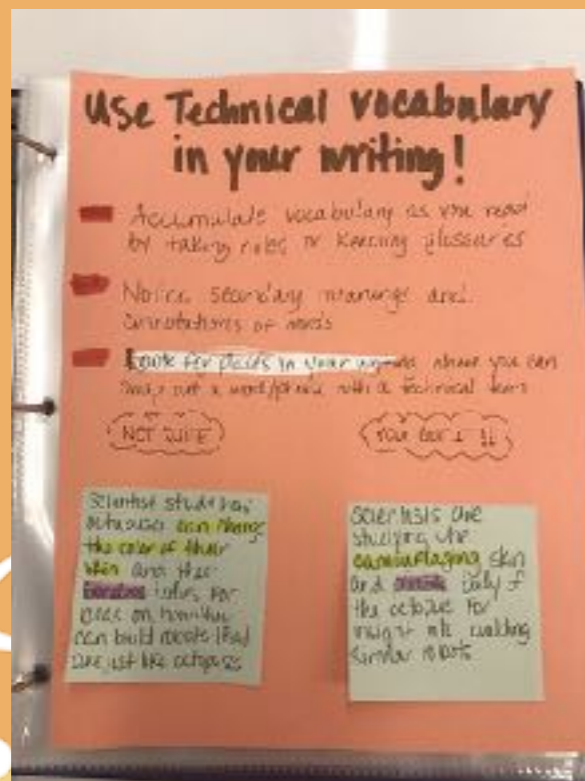 Use Technical Vocabulary
in your writing!
Accumulate vocabulary as you read
by taking notes or keeping glossaries
Notice secondary meanings and
connotations of words
Look for places in your writing where you can
swap out a word/phrase with a technical term
NOT QUITE
You Got it!!
Scientist study how
octopuses can change
the color of their
skin and their
boneless bodies for
ideas on how they
can build robots that
are just like octopuses
Scientists are
studying the
camouflaging skin
and body of
the octopus for
insight into building
similar robots